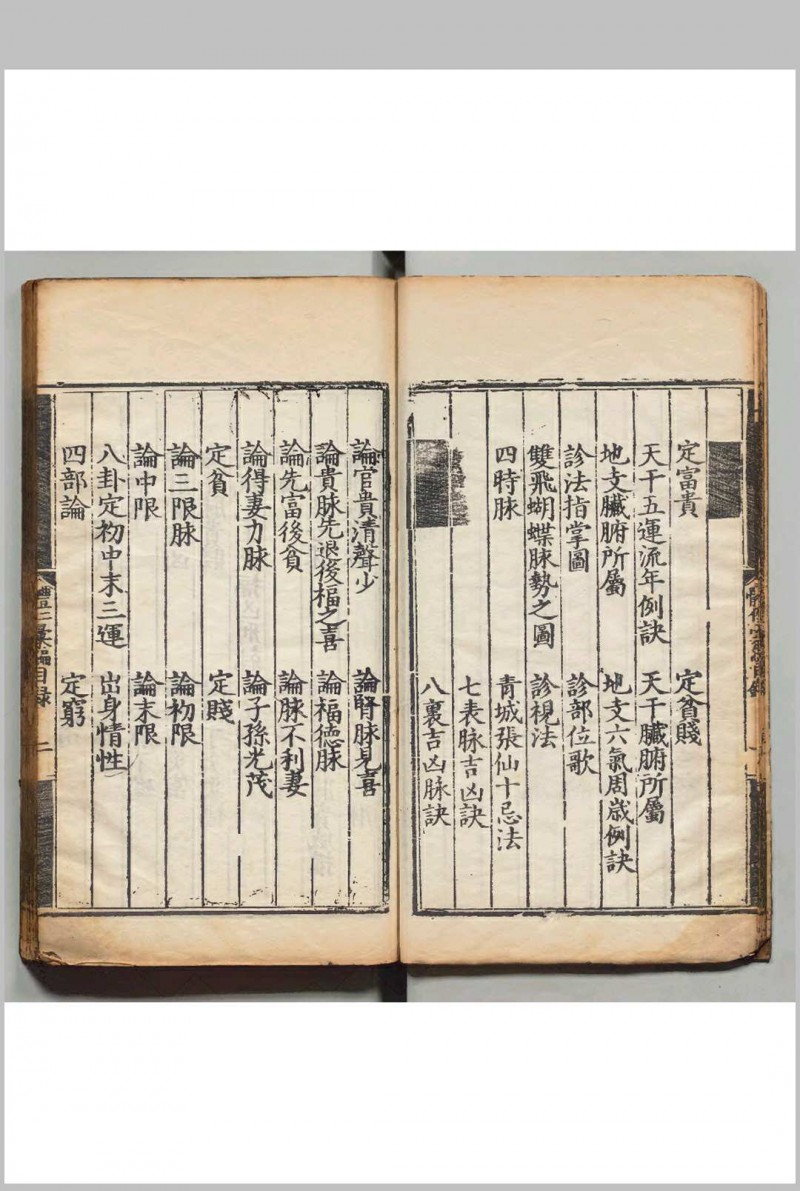 定貧賤
定富貴 天干臟腑所屬
天干五運流年例訣 地支六氣周歲例訣
地支臟腑所屬 診部位歌
診法指掌圖 診視法
雙飛蝴蝶脉勢之圖 青城張仙十忌法
四時脉 七表脉吉凶訣
八裏吉凶脉訣
論官貴清聲少 論腎脉見喜
論貴脉先退後福之喜 論福德脉
論先富後貧 論脉不利妻
論得妻力脉 論子孫光茂
定貧 定賤
論三限脉 論初限
論中限 論末限
八卦定初中末三運 出身情性
四部論 定窮
彙編目録 二